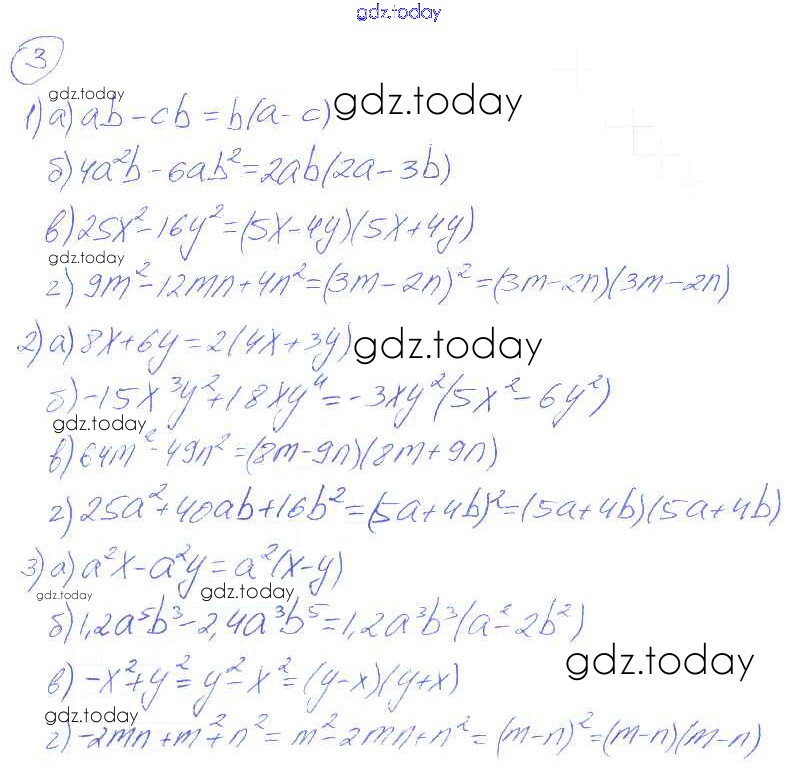 gdz.today
3
gdz.today
1) а) ab - cb = b(a - c) gdz.today
б) 4a²b - 6ab² = 2ab(2a - 3b)
в) 25x² - 16y² = (5x - 4y)(5x + 4y)
gdz.today
г) 9m² - 12mn + 4n² = (3m - 2n)² = (3m - 2n)(3m - 2n)
2) а) 8x + 6y = 2(4x + 3y) gdz.today
б) -15x³y² + 18xy⁴ = -3xy²(5x² - 6y²)
gdz.today
в) 64m² - 49n² = (8m - 9n)(8m + 9n)
г) 25a² + 40ab + 16b² = (5a + 4b)² = (5a + 4b)(5a + 4b)
3) а) a²x - a²y = a²(x - y)
gdz.today gdz.today
б) 1,2a⁵b³ - 2,4a³b⁵ = 1,2a³b³(a² - 2b²)
gdz.today
в) -x² + y² = y² - x² = (y - x)(y + x)
gdz.today
г) -2mn + m² + n² = m² - 2mn + n² = (m - n)² = (m - n)(m - n)